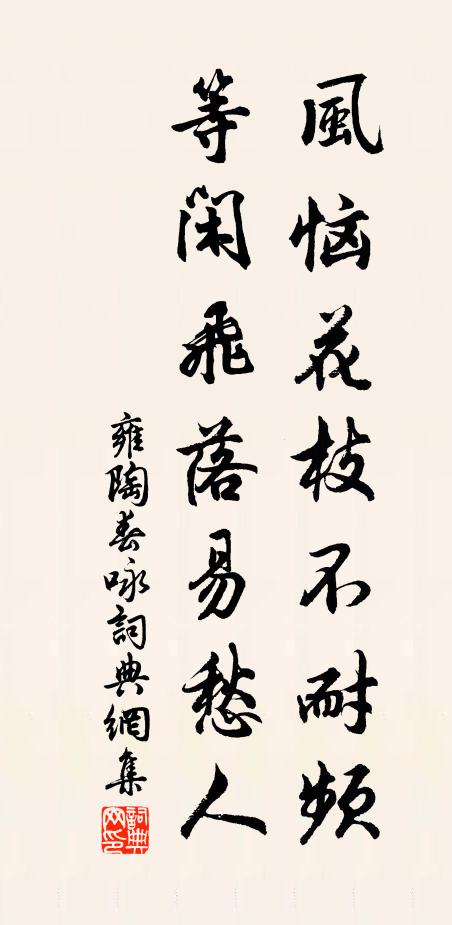 風惱花枝不耐頻
等閑飛落易愁人
雍陶春咏詞典網集
詞典網印